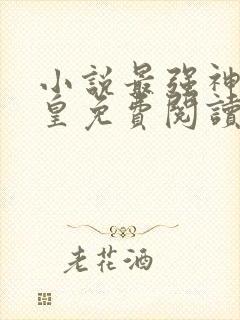 小說最强神
皇免費閱讀
老花酒